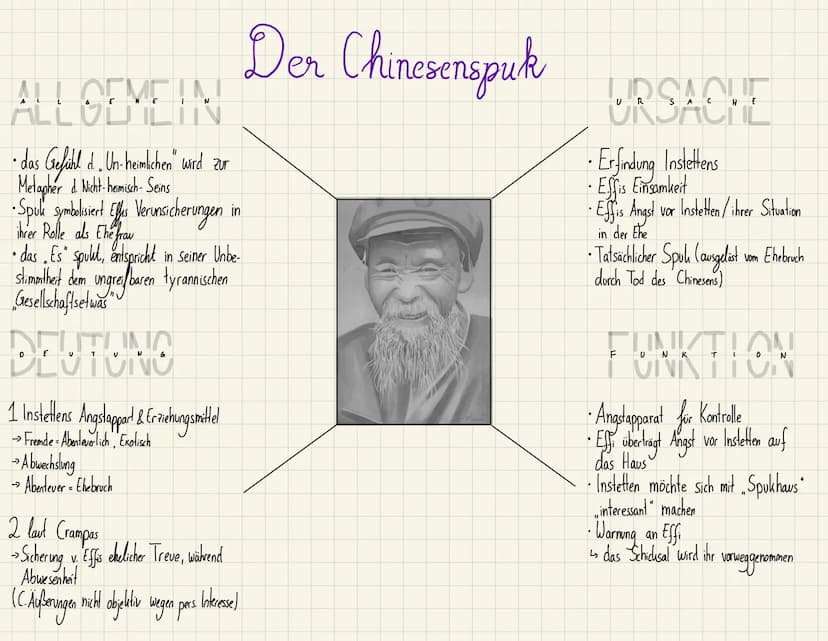 Der Chinesenspuk
ALLGEMEIN
ALLGEMEIN
• das Gefühl d. „Un-heimlichen" wird zur
Metapher d. Nicht-heimisch-Seins
• „Spuk" symbolisiert Effis Verunsicherungen in
ihrer Rolle als Ehefrau
• das „Es" spukt, entspricht in seiner Unbe-
stimmtheit dem ungreifbaren tyrannischen
„Gesellschaftsetwas"
DEUTUNG
DEUTUNG
1 Instettens Angstappart & Erziehungsmittel
→ Fremde = Abenteuerlich, Exotisch
→ Abwechslung
→ Abenteuer = Ehebruch
2 laut Crampas
→ Sicherung v. Effis ehelicher Treue, während
Abwesenheit
(C. Äußerungen nicht objektiv wegen pers. Interesse)
URSACHE
URSACHE
• Erfindung Instettens
• Effis Einsamkeit
• Effis Angst vor Instetten / ihrer Situation
in der Ehe
• Tatsächlicher Spuk (ausgelöst vom Ehebruch
durch Tod des Chinesens)
FUNKTION
FUNKTION
• Angstapparat für Kontrolle
• Effi überträgt Angst vor Instetten auf
das Haus
• Instetten möchte sich mit „Spukhaus"
„interessant" machen
• Warnung an Effi
↳ das Schicksal wird ihr vorweggenommen